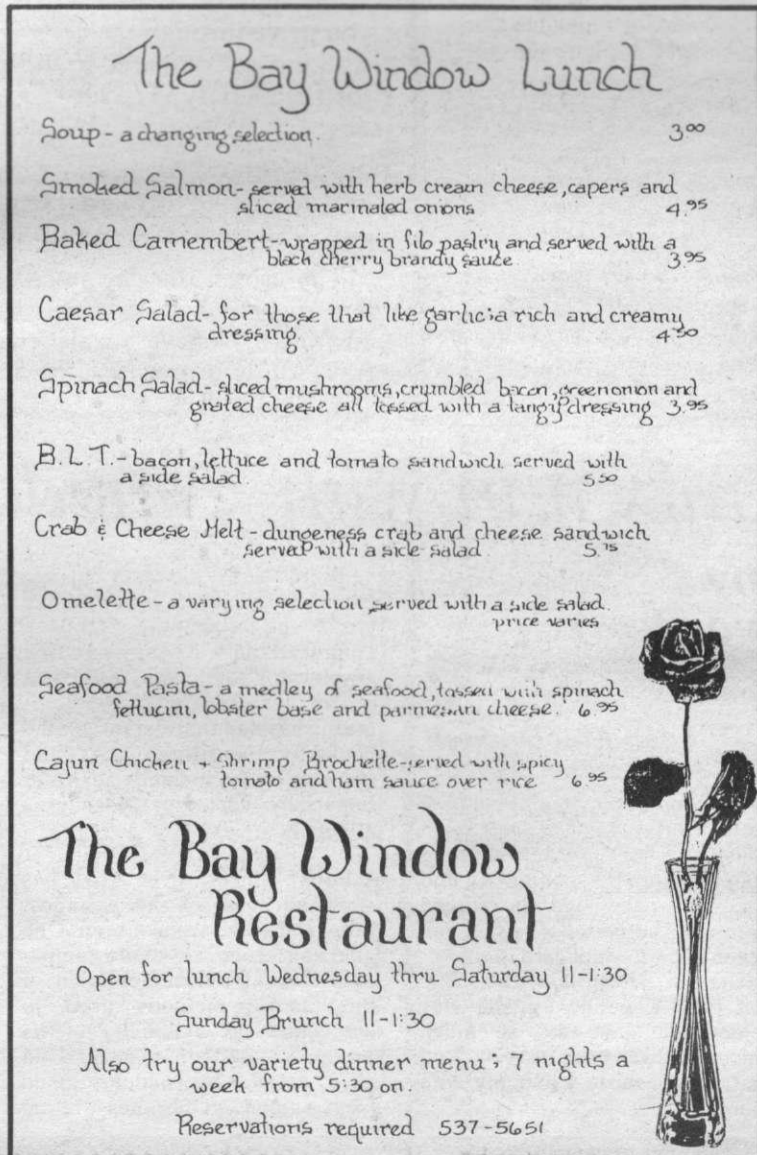 The Bay Window Lunch
Soup - a changing selection. 3.00
Smoked Salmon - served with herb cream cheese, capers and
sliced marinated onions 4.95
Baked Camembert - wrapped in filo pastry and served with a
black cherry brandy sauce 3.95
Caesar Salad - for those that like garlic; a rich and creamy
dressing 4.50
Spinach Salad - sliced mushrooms, crumbled bacon, green onion and
grated cheese all tossed with a tangy dressing 3.95
B.L.T. - bacon, lettuce and tomato sandwich served with
a side salad 5.50
Crab & Cheese Melt - dungeness crab and cheese sandwich
served with a side salad 5.75
Omelette - a varying selection served with a side salad.
price varies
Seafood Pasta - a medley of seafood, tossed with spinach
fettucini, lobster base and parmesan cheese. 6.95
Cajun Chicken + Shrimp Brochette - served with spicy
tomato and ham sauce over rice 6.95
The Bay Window
Restaurant
Open for lunch Wednesday thru Saturday 11-1:30
Sunday Brunch 11-1:30
Also try our variety dinner menu; 7 nights a
week from 5:30 on.
Reservations required 537-5651